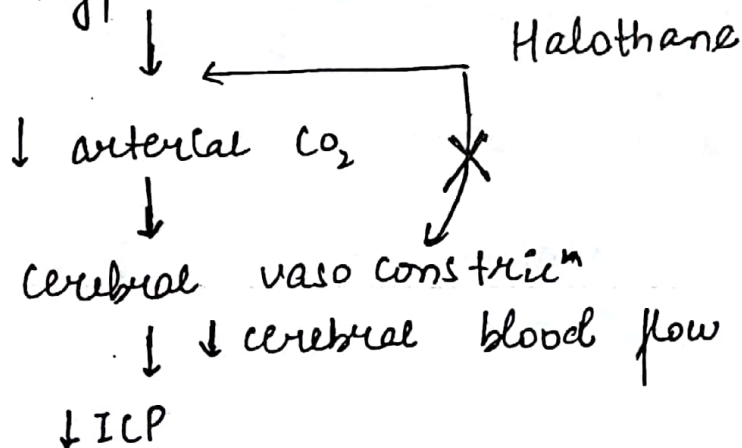 Halothane
↓ arterial CO₂
cerebral vaso constricⁿ
↓ cerebral blood flow
↓ ICP